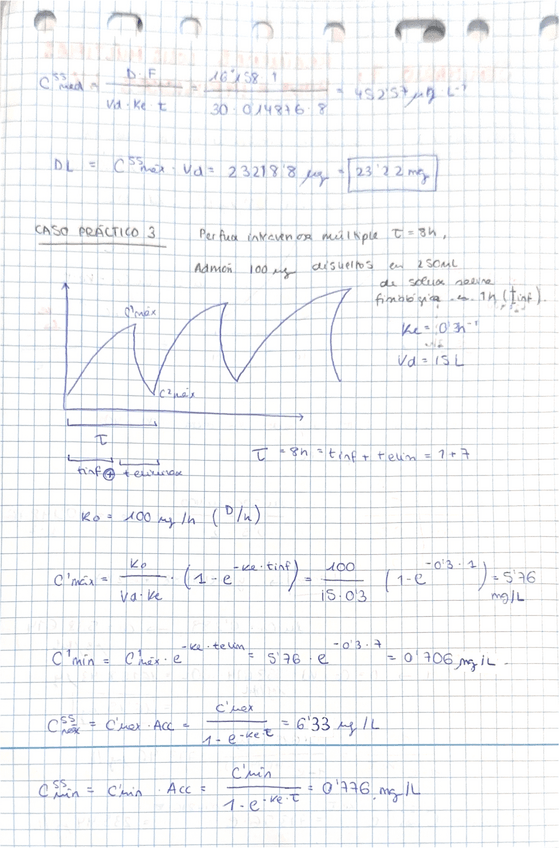 C^ss_med = D·F / Vd·Ke·τ = 16'158·1 / 30·0'14876·8 = 452'57 µg L⁻¹
DL = C^ss_máx · Vd = 23218'8 µg = 23'22 mg
CASO PRÁCTICO 3 Perfusión intravenosa múltiple τ = 8h,
Admón 100 mg disueltos en 250mL
de solución salina
fisiológica en 1h (tinf).
C¹máx
Ke = 0'3h⁻¹
Vd = 15 L
C²máx
τ
τ = 8h = tinf + telim = 1+7
tinf ⊕ t
Ko = 100 mg/h (D/h)
C¹máx = Ko / Vd·Ke · (1-e^-Ke·tinf) = 100 / 15·0'3 (1-e^-0'3·1) = 5'76
mg/L
C¹mín = C¹máx · e^-Ke·telim = 5'76 · e^-0'3·7 = 0'706 mg/L.
C^ss_máx = C¹máx · Acc = C¹máx / 1-e^-Ke·τ = 6'33 mg/L
C^ss_mín = C¹mín · Acc = C¹mín / 1-e^-Ke·τ = 0'776 mg/L